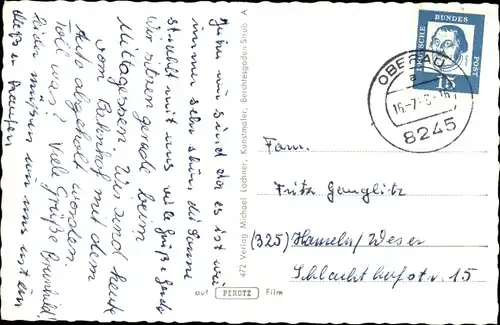 Jetzt sind wir da es ist wie
immer sehr schön die Sonne
strahlt mit uns viele Grüße Gerda
Wir sitzen gerade beim
Mittagessen. Wir sind heute
vom Bahnhof mit dem
Auto abgeholt worden.
Toll was? Viele Grüße
leider müssen wir uns mit ein
472 Verlag Michael Lochner, Kunstmaler, Berchtesgaden-Strub A
auf PERUTZ Film
DEUTSCHE BUNDES POST
15
OBERAU
a
8245
Fam.
Fritz Ganglitz
(325) Hameln/Weser
Schlachthofstr. 15